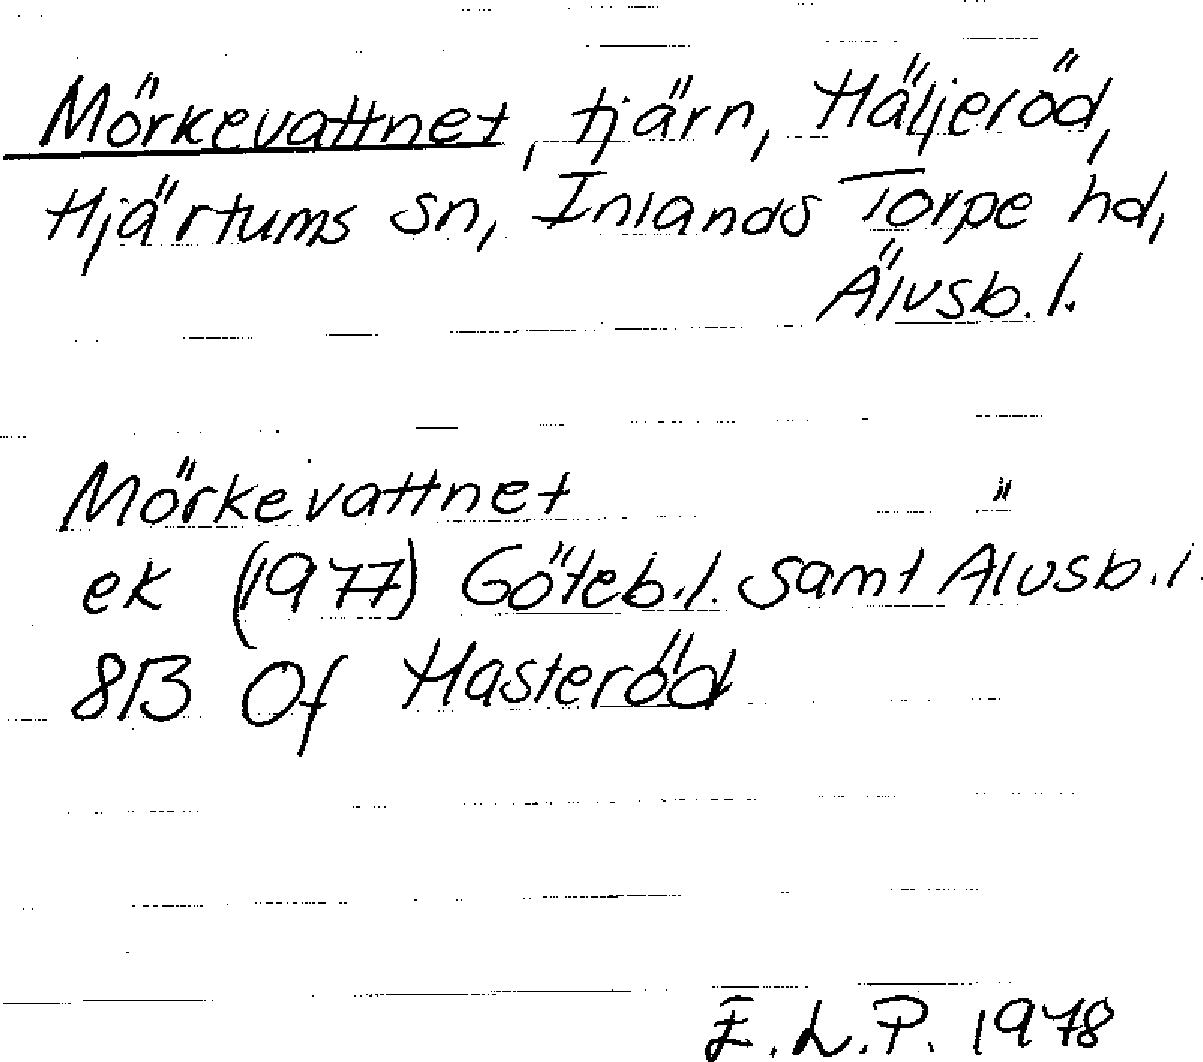 Mörkevattnet, tjärn, Häljeröd,
Hjärtums sn, Inlands Torpe hd,
Älvsb. l.
Mörkevattnet "
ek (1977) Göteb.l. samt Älvsb.l.
8B 0f Hasteröd
E.L.P. 1978